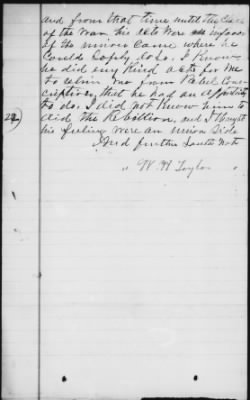 and from that time until the close
of the War, his acts were in favor
of the union cause where he
could safely to do. I Know
he did any Kind acts for me
to retain me from Rebel Cons-
cription, that he had an opportunity
to do. I did not Know him to
aid the Rebellion, and I thought
his feeling were on union Side
22)
And further Saith Not
" W. H. Taylor